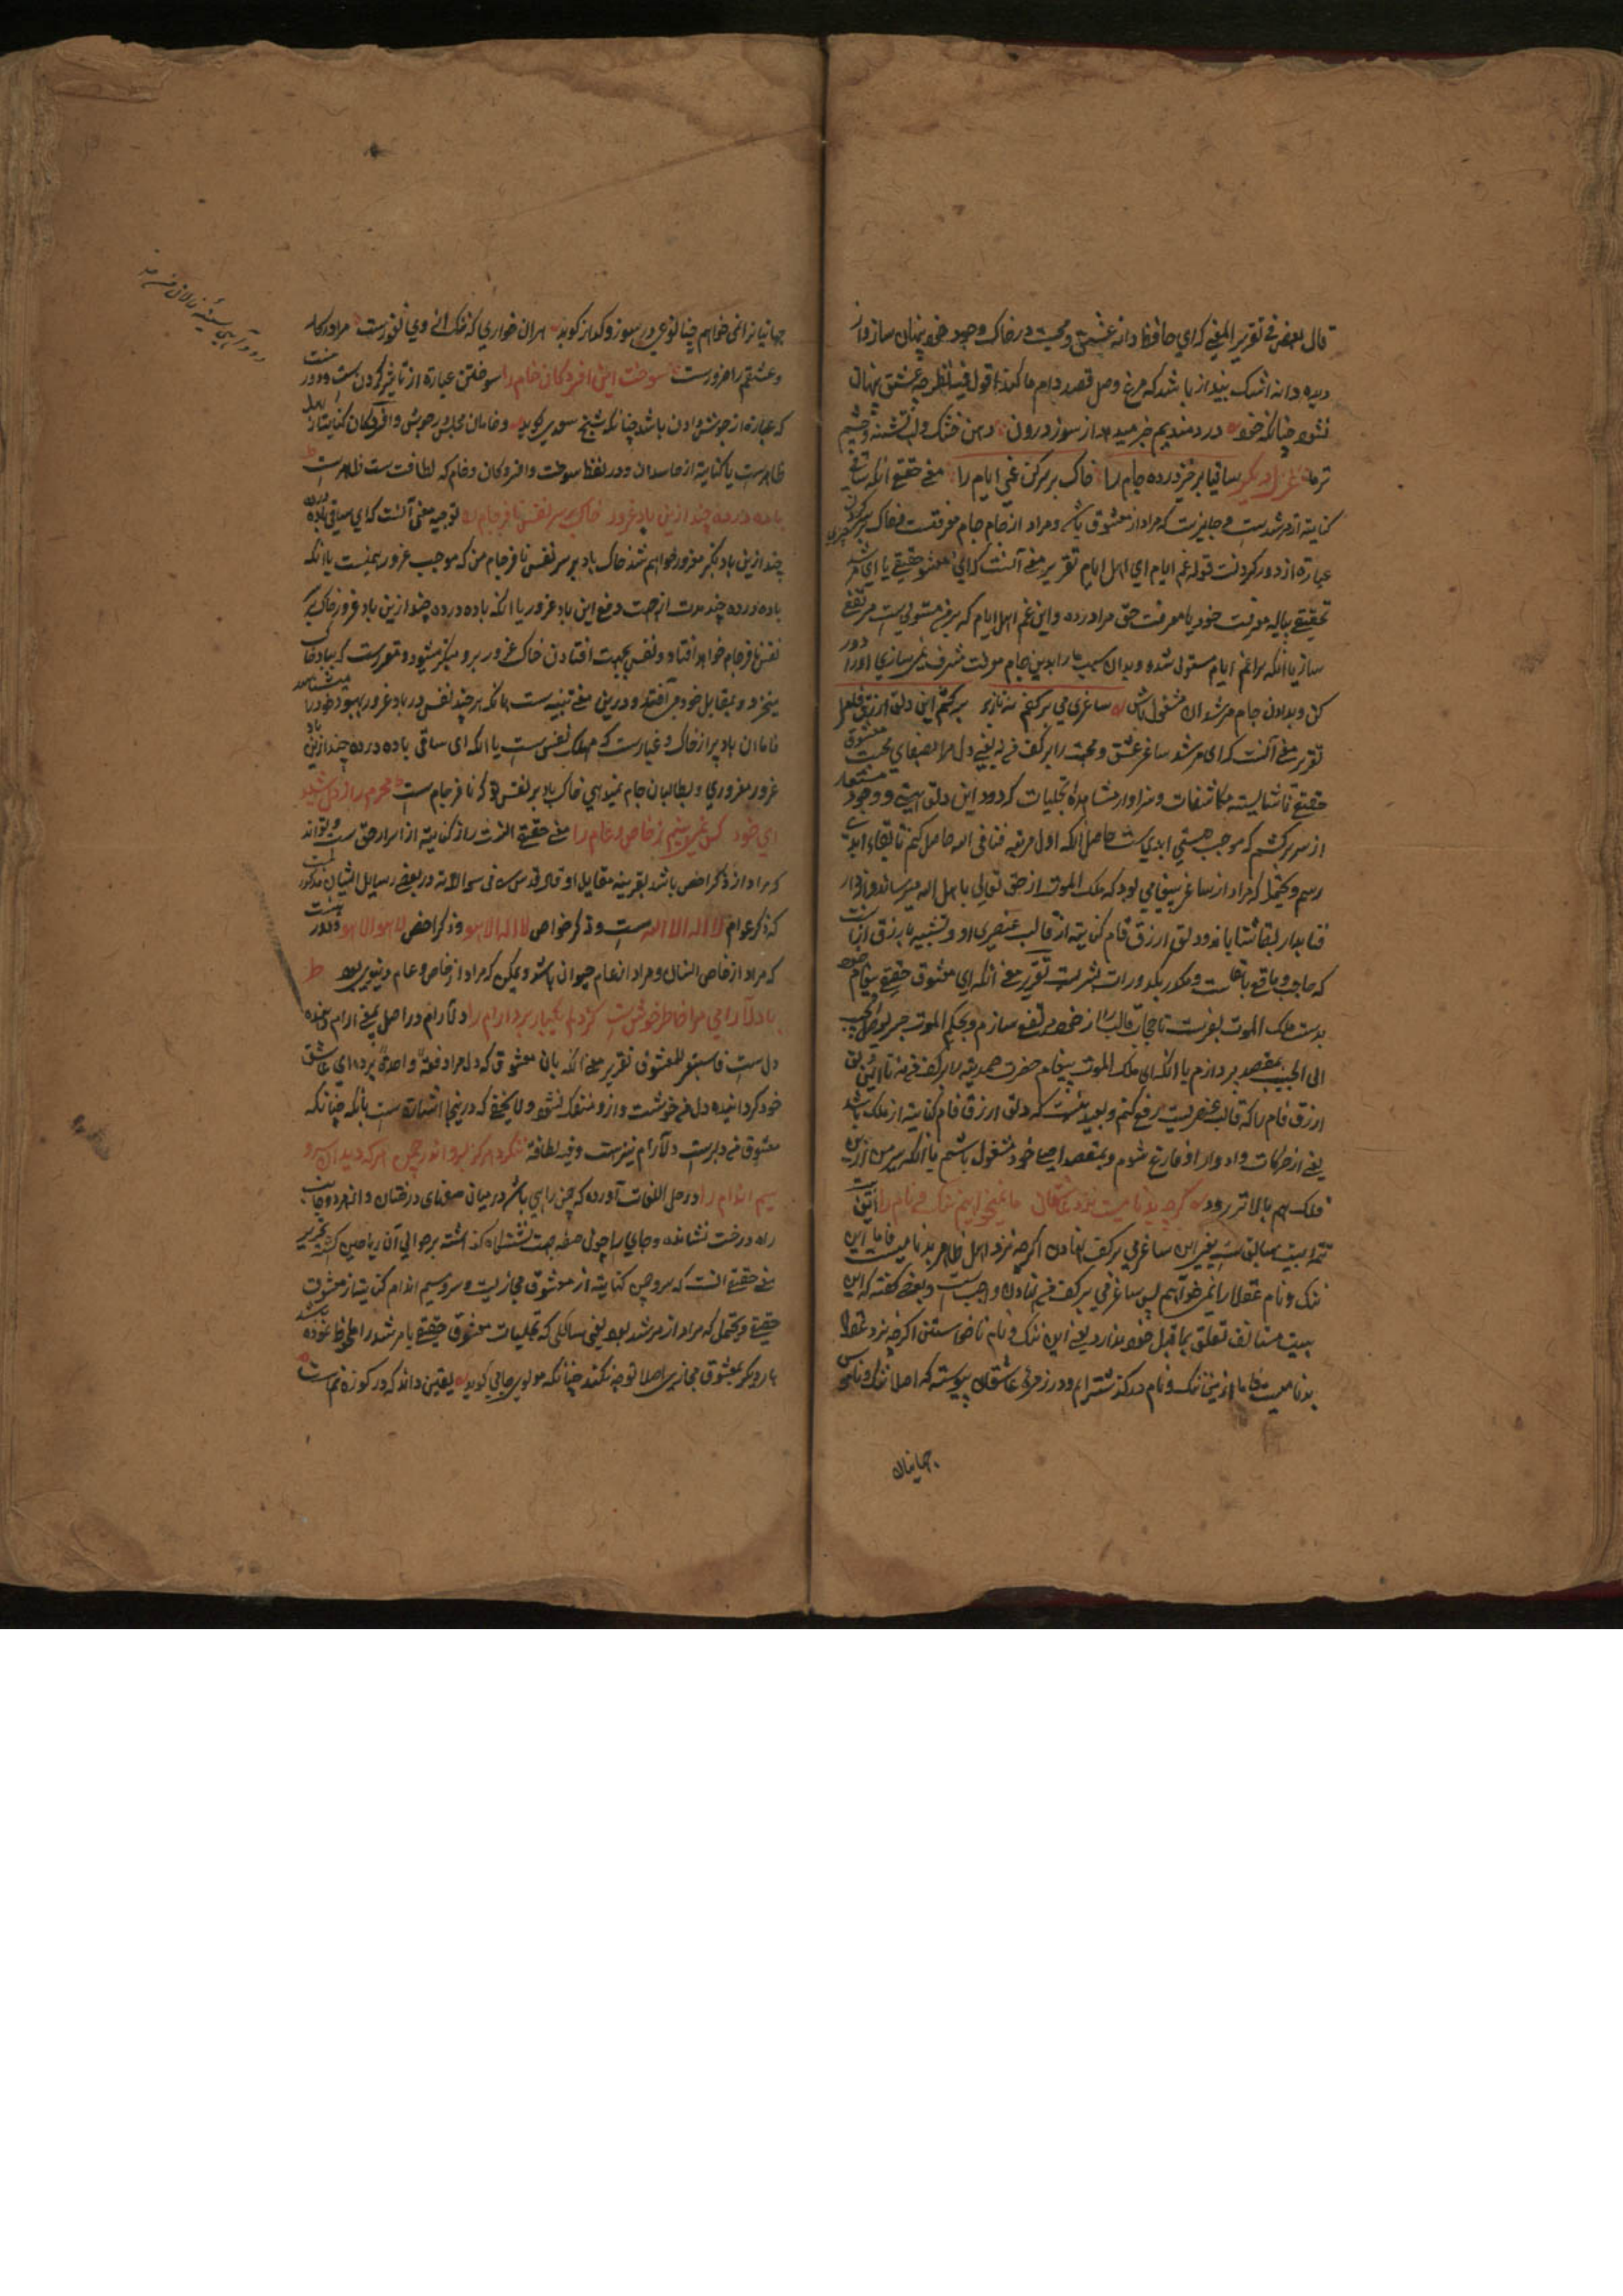 قال بعض فی تقریر المعنی که ای حافظ دانه عشق و محبت در خاک وجود خود پنهان ساز و از
دیده دانه اشک بینداز باشد که مرغ وصل قصد دام ما کند اقول فیه نظر چه عشق پنهان
نشود چنانکه خود دردمندیم خبر میدهد از سوز درون دهن خشک و لب تشنه و چشم
تر ما غزل دیگر ساقیا برخیز و درده جام را خاک بر سر کن غم ایام را معنی حقیقی آنکه ساقی
کنایة از مرشدست و جایزست که مراد از معشوق باشد و مراد از جام جام معرفت و خاک بر سر کردن چیزی
عبارة از دور کردنست قوله غم ایام ای اهل ایام تقریر معنی آنست که ای معشوق حقیقی یا ای مرشد
تحقیقی پیاله معرفت خود یا معرفت حق مرا درده و این غم اهل ایام که بر من مستولیست مرتفع
ساز یا آنکه مرا غم ایام مستولی شده و بدان سبب ما را بدین جام معرفت مشرف نمی سازی او را دور
کن و بدادن جام مرشدان مشغول باش ساغر می بر کفم نه تا ز بر برکشم این دلق ازرق فام را
تقریر معنی آنست که ای مرشد ساغر عشق و محبت را بر کف من نه یعنی دل مرا بصفای محبت معشوق
حقیقی تا شایسته مکاشفات و سزاوار مشاهده تجلیات گردد و این دلق هستی و وجود مستعار
از سر برکشم که موجب هستی ابدی ست حاصل آنکه اول مرتبه فنا فی الله حاصل کنم تا ببقاء ابدی
رسم و یحتمل که مراد از ساغر پیغامی بود که ملک الموت از حق تعالی باهل الله میرساند و از دار
فنا بدار بقا شتابانند و دلق ازرق فام کنایة از قالب عنصری او و تشبیه بازرق از آنست
که حاجب و مانع بقاست و مکدر بکدورات بشریت تقریر معنی آنکه ای معشوق حقیقی پیغام خود
بدست ملک الموت بفرست تا حجاب قالب را از خود مرتفع سازم و بحکم الموت جسر یوصل الحبیب
الی الحبیب بمقصد پردازم یا آنکه ای ملک الموت پیغام حضرت صمدیة را بر کف من نه تا این دلق
ازرق فام را که قالب عنصریست رفع کنم و بعید نیست که دلق ازرق فام کنایة از ملک باشد
یعنی از حرکات و ادوار او فارغ شوم و بمقصد اصلی خود مشغول باشم یا آنکه سیر من ازین
فلک هم بالاتر رود گرچه بدنامیست نزد عاقلان ما نمیخواهیم ننگ و نام را این
تتمه بیت سابق ست یعنی این ساغر می بر کف نهادن اگرچه نزد اهل ظاهر بدنامیست فاما این
ننگ و نام عقلا را نمیخواهیم پس ساغر می بر کف من نهادن واجب ست و بعضی گفته که این
بیت مستانف تعلق بما قبل خود ندارد یعنی این ننگ و نام ناخواستن اگرچه نزد عقلا
بدنامیست فاما ازین ننگ و نام درگذشته ایم و در زمره عاشقان پیوسته که اصلا ننگ و ناموس
جهانیان
جهانیان را نمی خواهیم چنانچه عرفی در سوز و گداز گوید
و عشقم را ضرورست سوخت این افسردگان خام را سوختن عبارة از تاثیر کردن ست و دود
که عبارة از جوش دادن باشد چنانکه شیخ سعدی گوید و خامان مجلس و جوش و افسردگان کنایتا از اهل
ظاهرست یا کنایة از حاسدان و در لفظ سوخت و افسردگان و خام که لطافت ست ظاهرست
باده درده چند ازین باد غرور خاک بر سر نفس نافرجام را توجیه معنی آنست که ای ساقی باده درده
چند ازین باد تکبر مغرور خواهم شد خاک باد بر سر نفس نافرجام من که موجب غرور همینست یا آنکه
باده درده چند مدت از جهت دفع این باد غرور یا آنکه باده درده چند ازین باد غرور خاک بر
نفس نافرجام خواهد افتاد و نفس بجهت افتادن خاک غرور بر و متکبر میشود و مقررست که بباد خاک
میخزد و بمقابل خود می افتد و درین معنی تنبیه ست بآنکه هرچند نفس در باد غرور بهبود خود را میشناسد
فاما آن باد پر از خاک و غبارست که مهلک نفس ست یا آنکه ای ساقی باده درده چند ازین باد
غرور مغروری و بطالبان جام نمیدهی خاک باد بر نفس تو که نافرجام است محرم راز دل شیدای
ای خود کس نمی بینم ز خاص و عام را معنی حقیقی آنست راز کنایة از اسرار حق ست و تواند
که مراد از ذکر اخص باشد بقرینه مقابل او قال قدس سره فی سوالاته در بعض رسایل ایشان مذکور ست
که ذکر عوام لا اله الا الله ست و ذکر خواص لا اله الا هو و ذکر اخص لا هو الا هو و دور نیست
که مراد از خاص انسان و مراد از عام حیوان باشد و ممکن که مراد از خاص و عام دنیوی بود
با دلارامی مرا خاطر خوشست کز دلم یکبار برد آرام را دلارام در اصل بمعنی آرام دهنده
دل ست فاستعیر للمعشوق تقریر معنی آنکه بآن معشوق که دل مرا دفعة واحدة برده ای عاشق
خود گردانیده دل من خوشست و ازو منفک نشود و لا یخفی که درینجا اشارت ست بآنکه چنانکه
معشوق من دلبرست دلارام نیز هست و فیه لطافة ننگرد دیگر بسرو اندر چمن هرکه دید آن سرو
سیم اندام را در حل اللغات آورده که چمن راهی باشد در میان صفهای درختان و از هر دو جانب
راه درخت نشانده و جای را چون صفه بجهت نشستگاه گذاشته بر حوالی آن ریاحین کشته تقریر
معنی حقیقی آنست که سرو چمن کنایة از معشوق مجازیست و سرو سیم اندام کنایتا از معشوق
حقیقی و یحتمل که مراد از مرشد بود یعنی سالکی که تجلیات معشوق حقیقی یا مرشد را ملحوظ نموده باشد
بار دیگر بمعشوق مجازی اصلا توجه نکند چنانکه مولوی جامی گوید یقین داند که در کوزه نم است